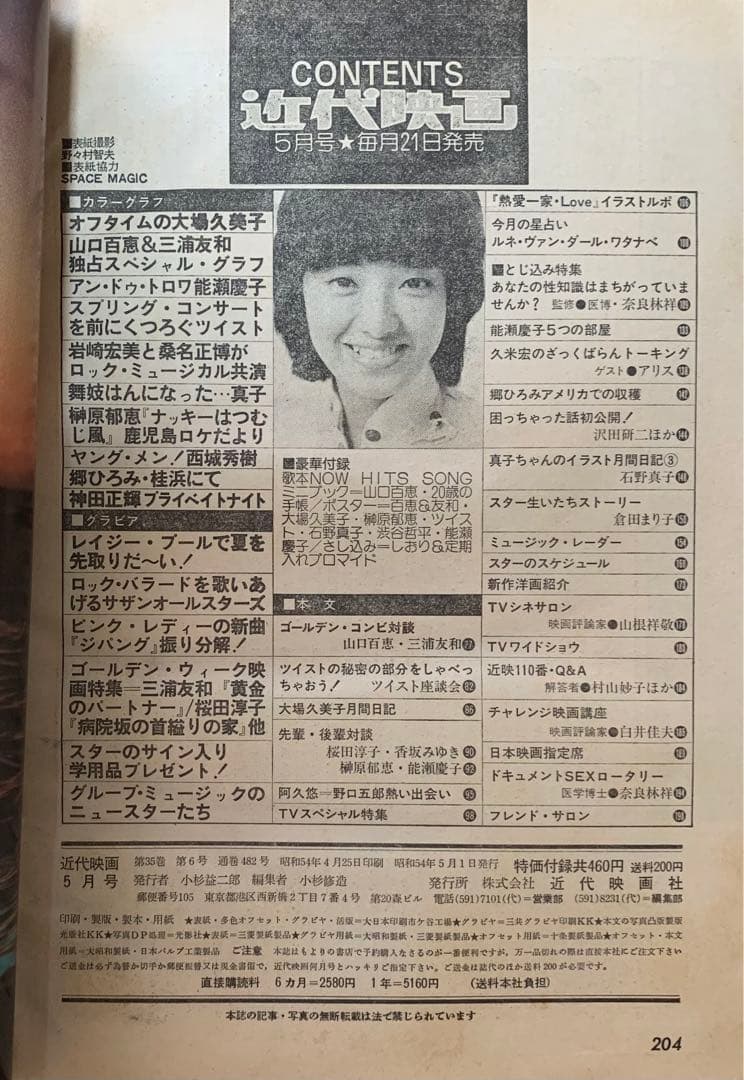 CONTENTS
近代映画
5月号★毎月21日発売
■表紙撮影
野々村智夫
■表紙協力
SPACE MAGIC
■カラーグラフ
オフタイムの大場久美子
山口百恵&三浦友和
独占スペシャル・グラフ
アン・ドゥ・トロワ能瀬慶子
スプリング・コンサート
を前にくつろぐツイスト
岩崎宏美と桑名正博が
ロック・ミュージカル共演
舞妓はんになった…真子
榊原郁恵『ナッキーはつむ
じ風』鹿児島ロケだより
ヤング・メン!西城秀樹
郷ひろみ・桂浜にて
神田正輝プライベイトナイト
■グラビア
レイジー・プールで夏を
先取りだ〜い!
ロック・バラードを歌いあ
げるサザンオールスターズ
ピンク・レディーの新曲
『ジパング』振り分解!
ゴールデン・ウィーク映
画特集=三浦友和『黄金
のパートナー』/桜田淳子
『病院坂の首縊りの家』他
スターのサイン入り
学用品プレゼント!
グループ・ミュージックの
ニュースターたち
■豪華付録
歌本NOW HITS SONG
ミニブック=山口百恵・20歳の
手帳/ポスター=百恵&友和・
大場久美子・榊原郁恵・ツイス
ト・石野真子・渋谷哲平・能瀬
慶子/さし込み=しおり&定期
入れブロマイド
■本文
ゴールデン・コンビ対談
山口百恵・三浦友和77
ツイストの秘密の部分をしゃべっ
ちゃおう! ツイスト座談会82
大場久美子月間日記86
先輩・後輩対談
桜田淳子・香坂みゆき90
榊原郁恵・能瀬慶子92
阿久悠=野口五郎熱い出会い95
TVスペシャル特集98
『熱愛一家・Love』イラストルポ
今月の星占い
ルネ・ヴァン・ダール・ワタナベ
■とじ込み特集
あなたの性知識はまちがっていま
せんか? 監修●医博・奈良林祥
能瀬慶子5つの部屋
久米宏のざっくばらんトーキング
ゲスト●アリス
郷ひろみアメリカでの収穫
困っちゃった話初公開!
沢田研二ほか
真子ちゃんのイラスト月間日記③
石野真子
スター生いたちストーリー
倉田まり子
ミュージック・レーダー
スターのスケジュール
新作洋画紹介
TVシネサロン
映画評論家●山根祥敬
TVワイドショウ
近映110番・Q&A
解答者●村山妙子ほか
チャレンジ映画講座
映画評論家●白井佳夫
日本映画指定席
ドキュメントSEXロータリー
医学博士●奈良林祥
フレンド・サロン
近代映画 第35巻 第6号 通巻482号 昭和54年4月25日印刷 昭和54年5月1日発行 特価付録共460円 送料200円
5月号 発行者 小杉益二郎 編集者 小杉修造 発行所 株式会社 近代映画社
郵便番号105 東京都港区西新橋2丁目7番4号 第20森ビル 電話(591)7101(代)=営業部 (591)8231(代)=編集部
印刷・製版・製本・用紙 ★表紙・多色オフセット・グラビヤ・活版=大日本印刷市ケ谷工場★グラビヤ=三共グラビヤ印刷KK★本文の写真凸版製版
光版社KK★写真DP処理=光影社★表紙=三菱製紙製品★グラビヤ用紙=大昭和製紙・三菱製紙製品★オフセット用紙=十条製紙製品★オフセット・本文
用紙=大昭和製紙・日本パルプ工業製品 ご注意 本誌はもよりの書店で予約購入なさるのが一番便利ですが、万一品切れの際は直接本社にご注文下さい
ご送金は必ず為替か切手か郵便振替又は現金書留で、近代映画何月号とハッキリご指定下さい。ご送金は誌代のほか送料200が必要です。
直接購読料 6カ月=2580円 1年=5160円 (送料本社負担)
本誌の記事・写真の無断転載は法で禁じられています
204